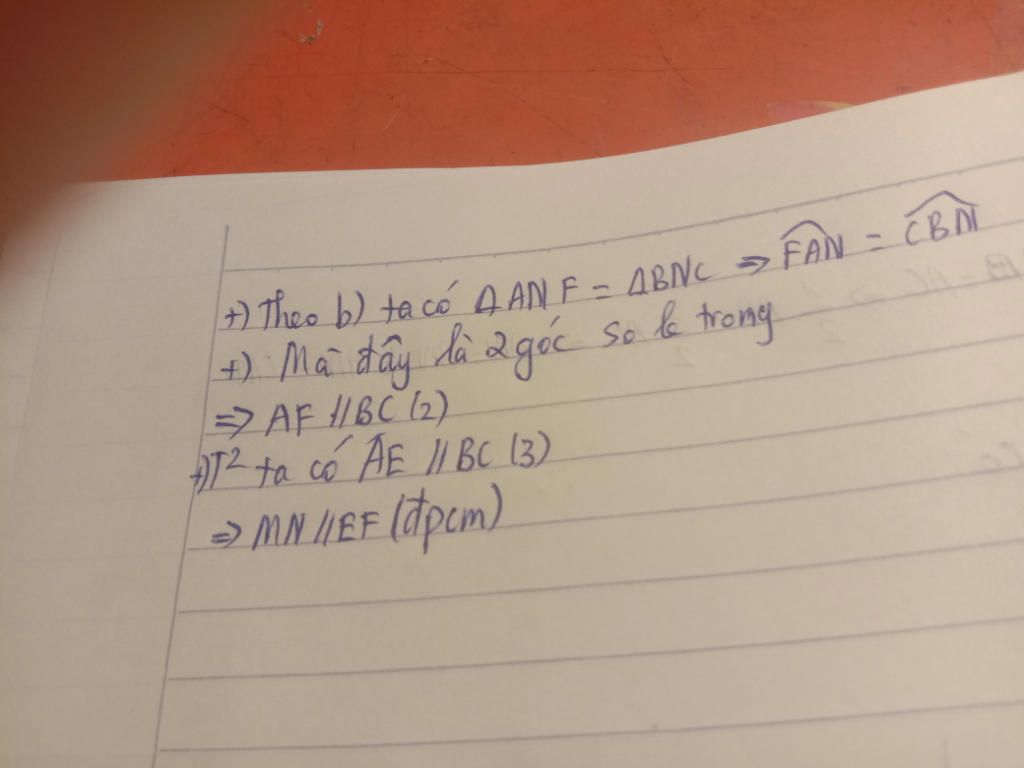 +) Theo b) ta có ΔANF = ΔBNC ⇒ \widehat{FAN} = \widehat{CBN}
+) Mà đây là 2 góc so le trong
⇒ AF // BC (2)
+) T² ta có AE // BC (3)
⇒ MN // EF (đpcm)